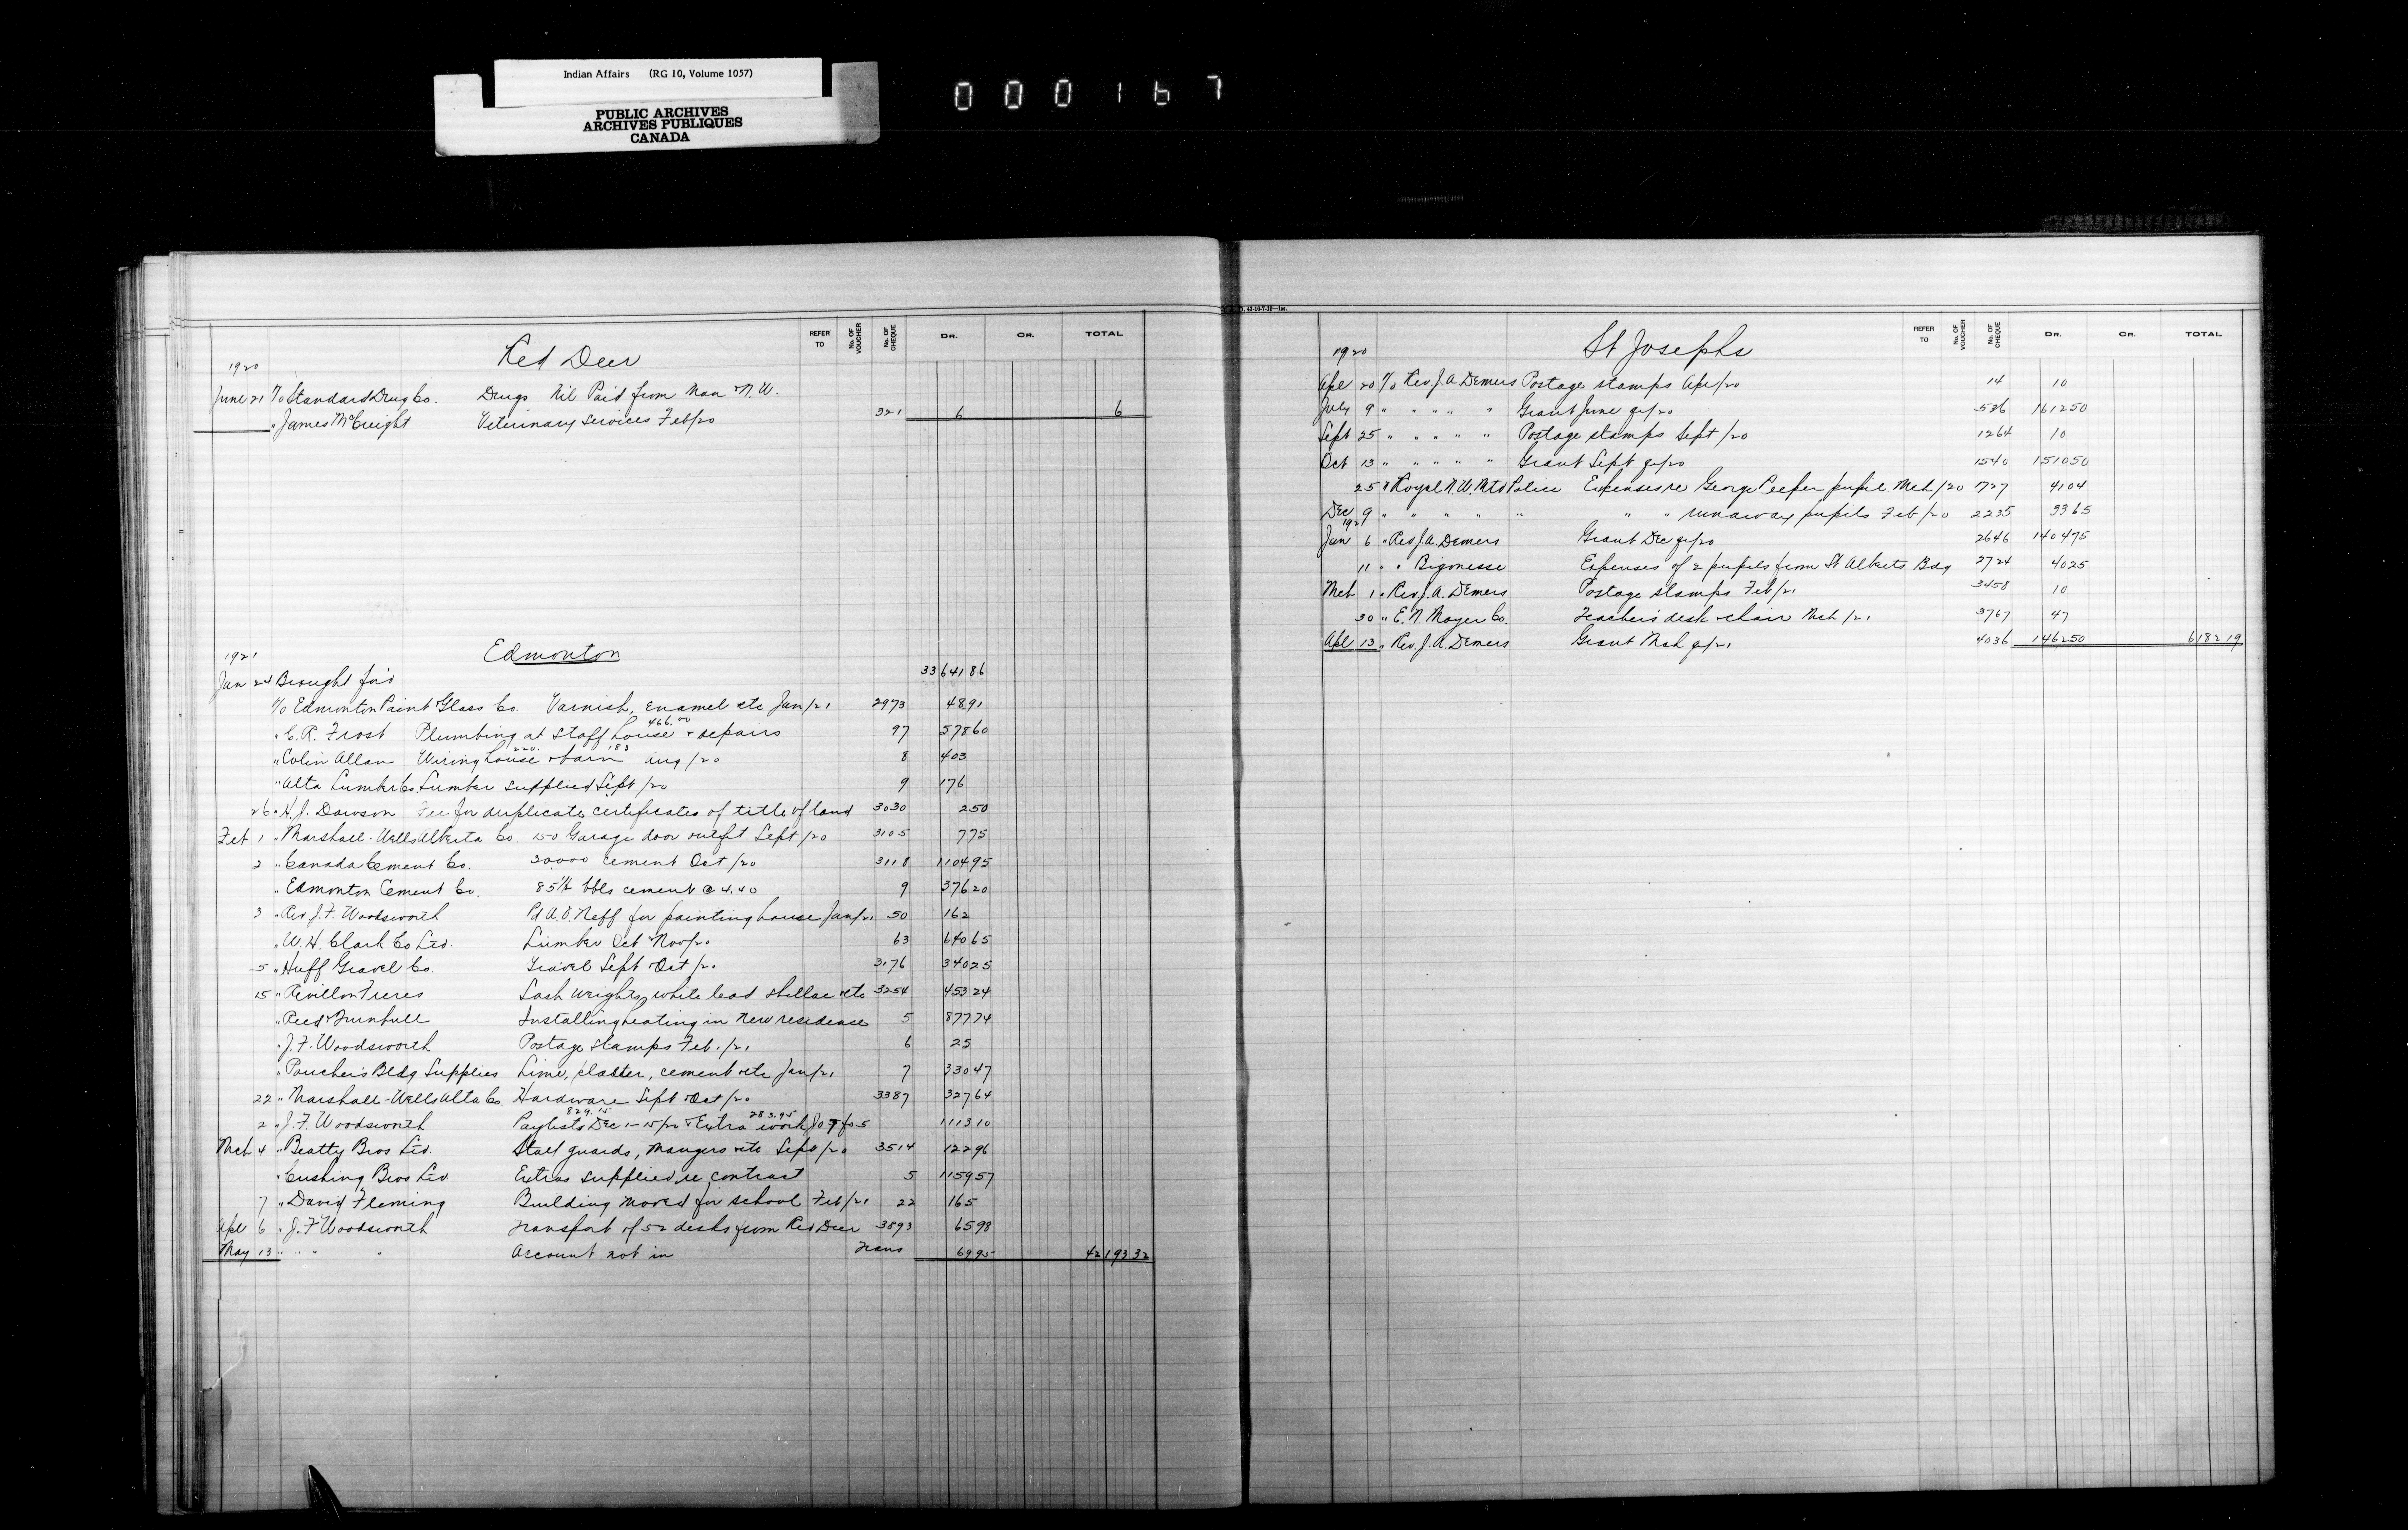 Indian Affairs (RG 10, Volume 1057)
PUBLIC ARCHIVES
ARCHIVES PUBLIQUES
CANADA
000167
REFER TO No. OF VOUCHER No. OF CHEQUE DR. CR. TOTAL
Red Deer
1920
June 21 To Standard Drug Co. Drugs Nil Paid from Man & N.W.
" James McCreight Veterinary services Feb/20 321 6 6
Edmonton
1921
Jan 24 Brought for'd 33641 86
To Edmonton Paint & Glass Co. Varnish, enamel etc Jan/21 2973 48 91
" C.R. Frost Plumbing at staff house 466.00 & repairs 97 578 60
" Colin Allan Wiring house 220. & barn 183 Aug/20 8 403
" Alta Lumber Co. Lumber supplied Sept/20 9 176
26 " H.J. Dawson Fee for duplicate certificates of title of land 3030 2 50
Feb 1 " Marshall-Wells Alberta Co. 150 Garage door outfit Sept/20 3105 7 75
2 " Canada Cement Co. cement Oct/20 3118 1104 95
" Edmonton Cement Co. 85½ bbls cement @ 4.40 9 376 20
3 " Rev J.F. Woodsworth Pd A.O. Neff for painting house Jan/21 50 162
" W.H. Clark Co Ltd. Lumber Oct & Nov/20 63 640 65
5 " Huff Gravel Co. Gravel Sept & Oct/20 3176 340 25
15 " Revillon Freres Sash weights, white lead shellac etc 3254 453 24
" Reed & Turnbull Installing heating in new residence 5 877 74
" J.F. Woodsworth Postage stamps Feb./21 6 25
" Pouchers Bldg Supplies Lime, plaster, cement etc Jan/21 7 330 47
22 " Marshall-Wells Alta Co. Hardware Sept & Oct/20 3387 327 64
2 " J.F. Woodsworth Paylists 829.15 Dec 1-15/20 & Extra work 283.95 1113 10
Mch 4 " Beatty Bros Ltd. Stall guards, mangers etc Sept/20 3514 122 96
" Cushing Bros Ltd Extras supplied re contract 5 1159 57
7 " David Fleming Building moved for school Feb/21 22 165
Apl 6 " J.F. Woodsworth Transport of 52 desks from Red Deer 3893 65 98
May 13 " " " " Account not in Trans 69 95 42193 32
D. 43-16-7-19—1M.
REFER TO No. OF VOUCHER No. OF CHEQUE DR. CR. TOTAL
St Josephs
1920
Apl 20 To Rev. J.A. Demers Postage stamps Apl/20 14 10
July 9 " " " " " Grant June qr/20 536 1612 50
Sept 25 " " " " " Postage stamps Sept/20 1264 10
Oct 13 " " " " " Grant Sept qr/20 1540 1510 50
25 " Royal N.W. Mtd Police Expenses re George Peefer pupil Mch/20 1727 41 04
Dec 9 " " " " " " " runaway pupils Feb/20 2235 33 65
1921
Jan 6 " Rev J.A. Demers Grant Dec qr/20 2646 1404 75
11 " " Bigonesse Expenses of 2 pupils from St Alberts Bdg 2724 40 25
Mch 1 " Rev. J.A. Demers Postage stamps Feb/21 3458 10
30 " E.N. Moyer Co. Teacher's desk & chair Mch/21 3767 47
Apl 13 " Rev. J.A. Demers Grant Mch qr/21 4036 1462 50 6182 19